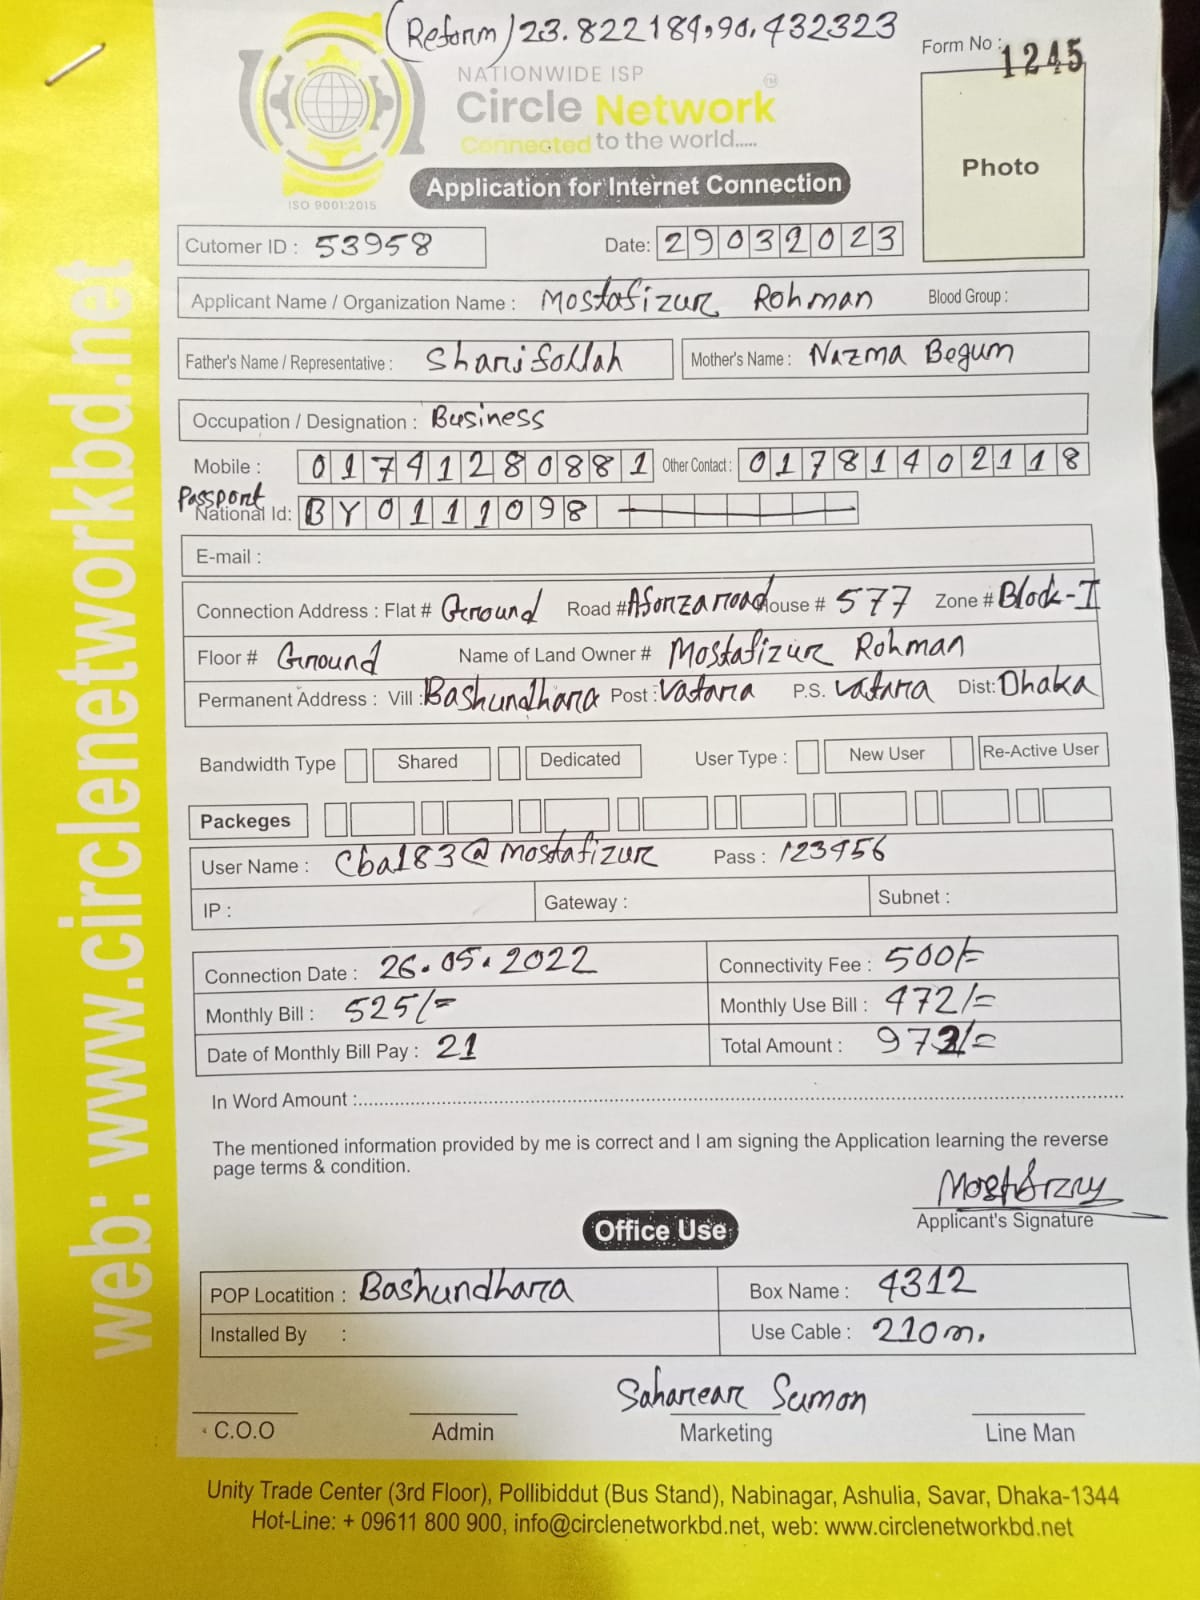 (Reform) 23.822189,90.432323
Form No : 1245
NATIONWIDE ISP
Circle Network
TM
Connected to the world.....
ISO 9001:2015
Application for Internet Connection
Photo
Cutomer ID : 53958
Date: 29032023
Applicant Name / Organization Name : Mostafizur Rohman Blood Group :
Father's Name / Representative : Sharifollah Mother's Name : Nazma Begum
Occupation / Designation : Business
Mobile : 01741280881 Other Contact : 01781402118
Passport
National Id: BY0111098
E-mail :
Connection Address : Flat # Ground Road # Afonza road House # 577 Zone # Block-I
Floor # Ground Name of Land Owner # Mostafizur Rohman
Permanent Address : Vill : Bashundhara Post : Vatara P.S. Vatara Dist: Dhaka
Bandwidth Type Shared Dedicated User Type : New User Re-Active User
Packeges
User Name : Cba183@mostafizur Pass : 123456
IP : Gateway : Subnet :
Connection Date : 26.05.2022 Connectivity Fee : 500/=
Monthly Bill : 525/= Monthly Use Bill : 472/=
Date of Monthly Bill Pay : 21 Total Amount : 972/=
In Word Amount :
The mentioned information provided by me is correct and I am signing the Application learning the reverse
page terms & condition.
Applicant's Signature
Office Use
POP Locatition : Bashundhara Box Name : 4312
Installed By : Use Cable : 210m.
Saharear Sumon
C.O.O Admin Marketing Line Man
Unity Trade Center (3rd Floor), Pollibiddut (Bus Stand), Nabinagar, Ashulia, Savar, Dhaka-1344
Hot-Line: + 09611 800 900, info@circlenetworkbd.net, web: www.circlenetworkbd.net
web: www.circlenetworkbd.net